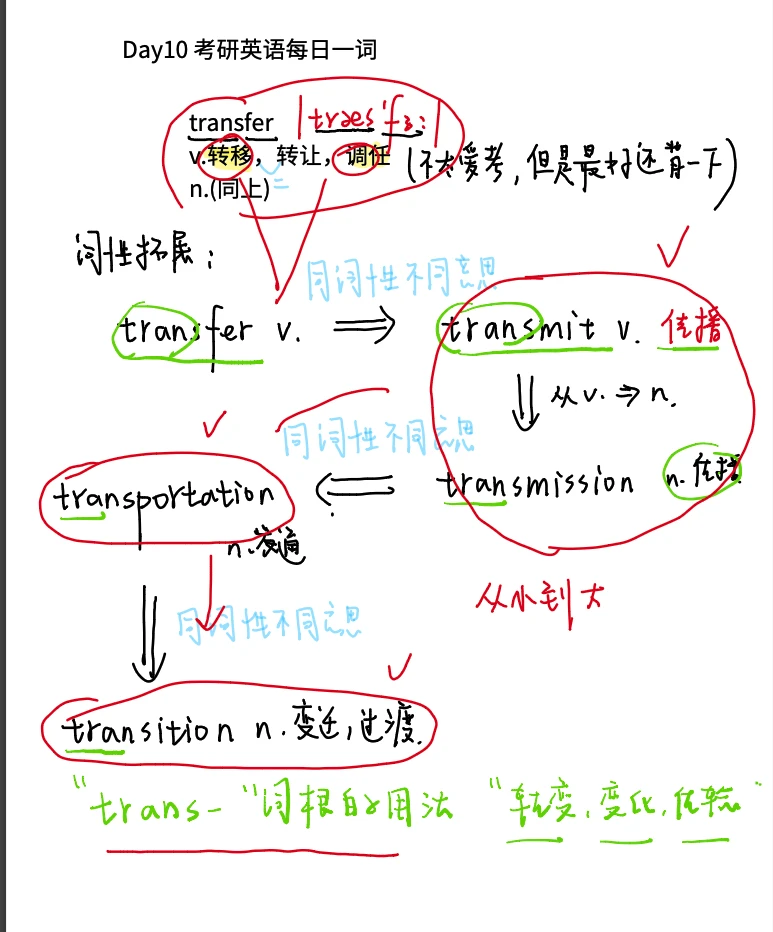 Day10 考研英语每日一词
transfer |træns'fɜ:|
v.转移，转让，调任 (不太爱考，但是最好还背一下)
n.(同上)
词性拓展：
同词性不同意思
transfer v. ⇒ transmit v. 传播
⇓ 从 v. ⇒ n.
同词性不同意思
transportation ⇐ transmission n. 传播
n.交通
从小到大
⇓ 同词性不同意思
transition n. 变迁，过渡.
"trans-"词根的用法 "转变，变化，传输"